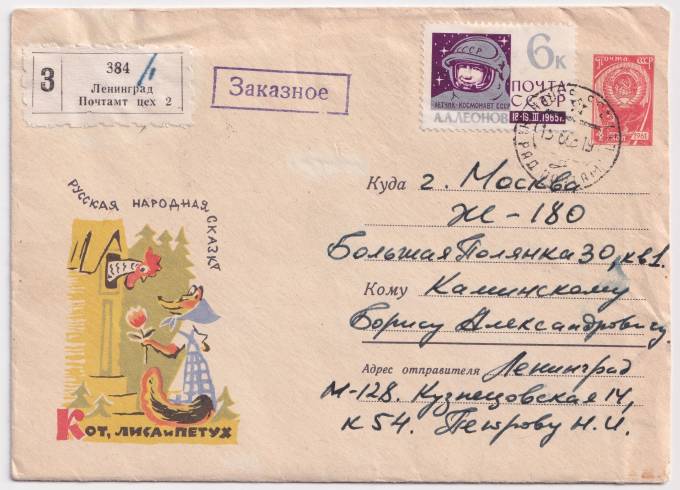 З
384
Ленинград
Почтамт цех 2
Заказное
СССР
6к
ПОЧТА
СССР
ЛЕТЧИК-КОСМОНАВТ СССР
А.А.ЛЕОНОВ
18-19.III.1965г.
ПОЧТА СССР
1961
РУССКАЯ НАРОДНАЯ СКАЗКА
КОТ, ЛИСА И ПЕТУХ
Куда г. Москва
Ж-180
Большая Полянка 30, кв 1.
Кому Каминскому
Борису Александровичу.
Адрес отправителя Ленинград
М-128. Кузнецовская 14,
к 54. Петрову Н.И.